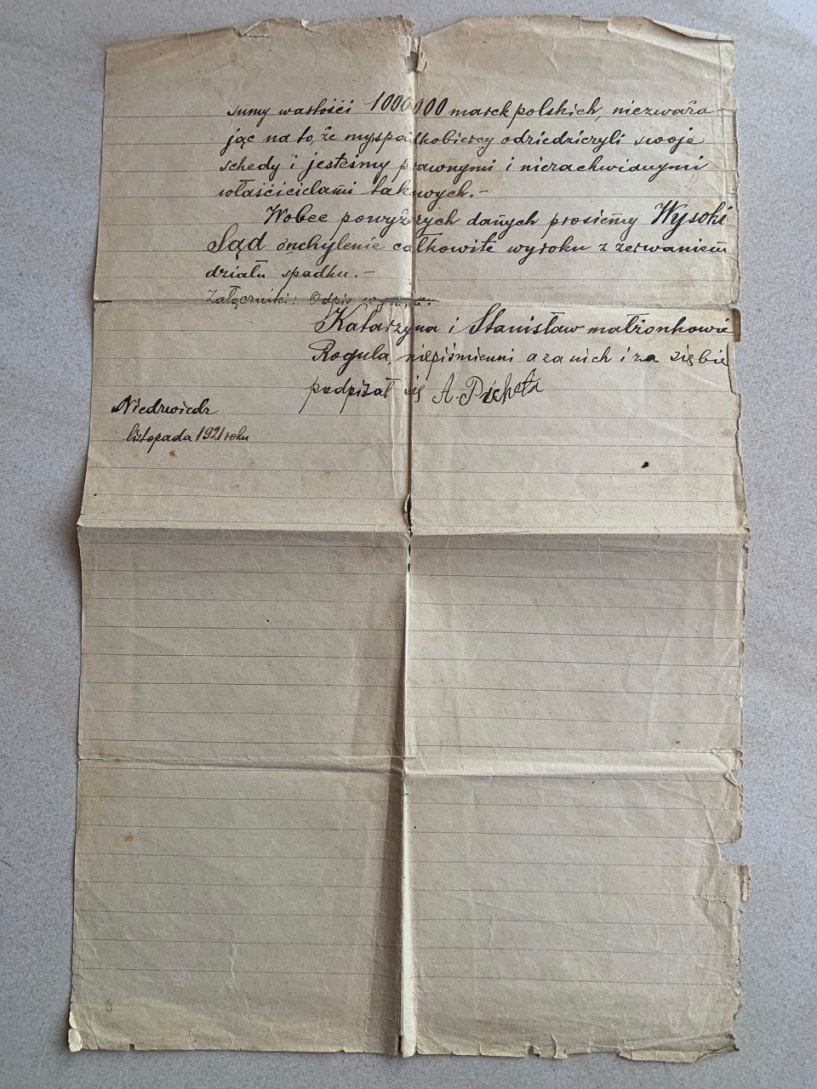 sumy wartości 1000000 marek polskich, niezważa-
jąc na to, że my spadkobiercy odziedziczyli swoje
schedy i jesteśmy prawnymi i niezachwianymi
właścicielami takowych.-
Wobec powyższych danych prosiemy Wysoki
Sąd o uchylenie całkowite wyroku z zerwaniem
działu spadku.-
Załączniki: Odpis
Katarzyna i Stanisław małżonkowie
Rogula, niepiśmienni a za nich i za siębie
podpisał się A. Picheta
Niedzwiedz
listopada 1921 roku